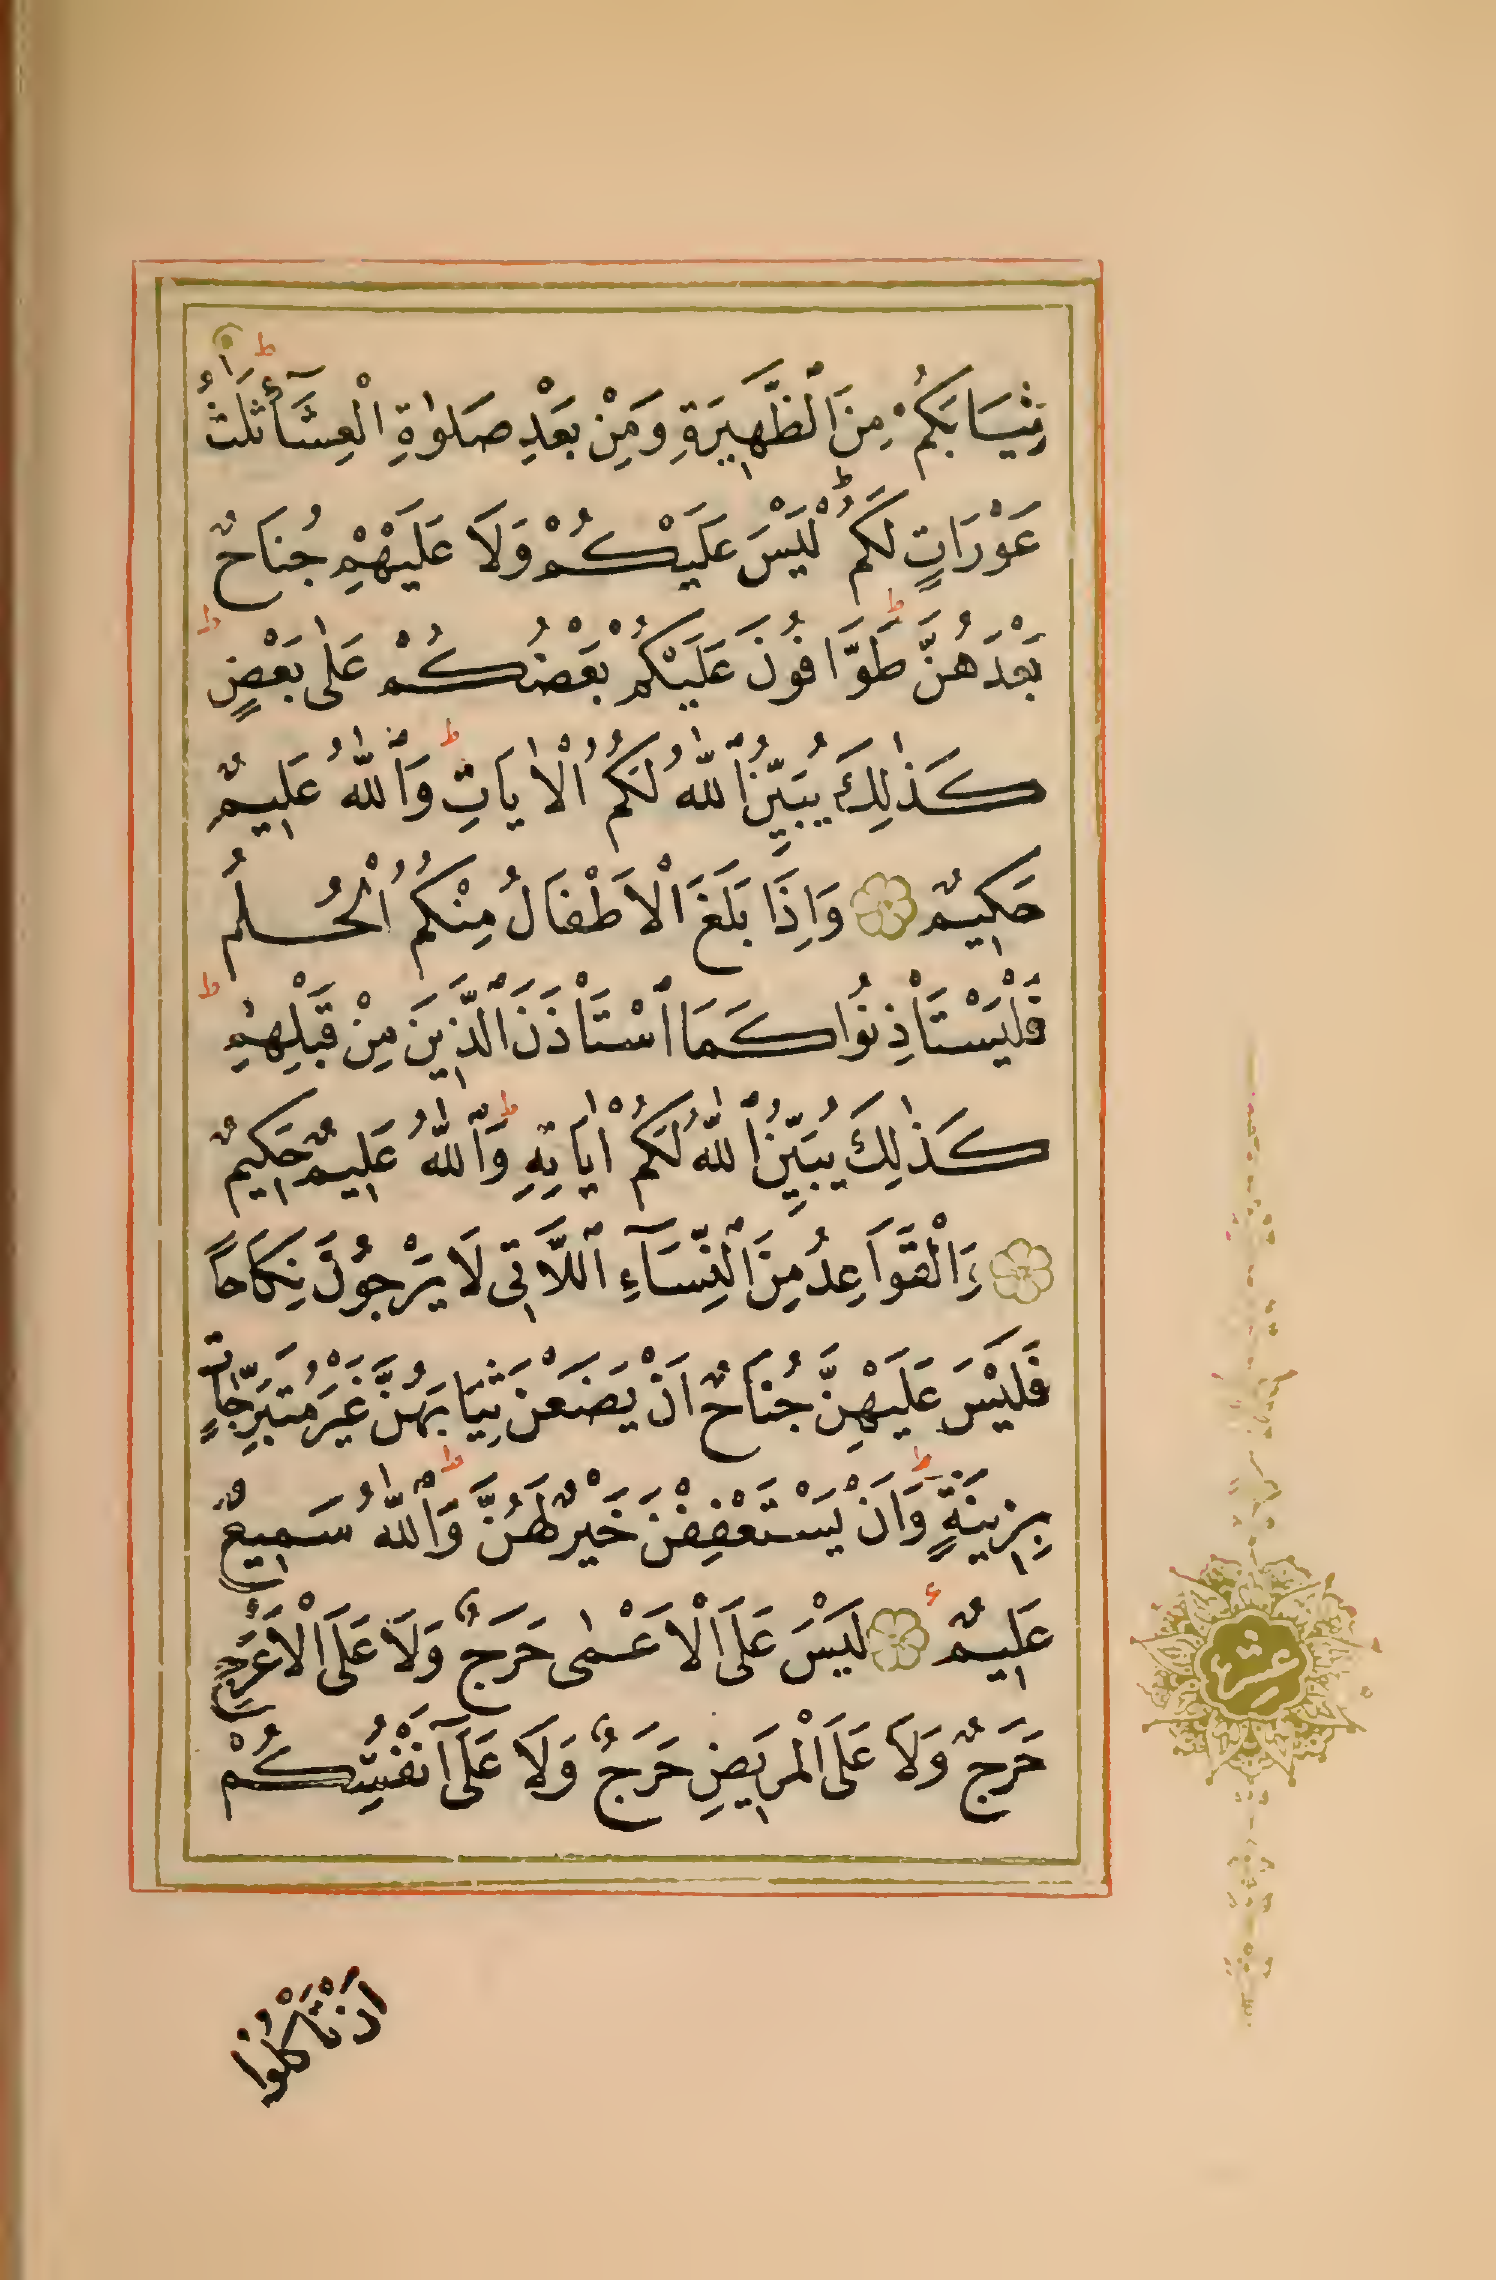 ثِيَابَكُمْ مِنَ ٱلظَّهِيرَةِ وَمِنْ بَعْدِ صَلٰوةِ الْعِشَآءِ ثَلٰثُ
عَوْرَاتٍ لَكُمْ لَيْسَ عَلَيْكُمْ وَلَا عَلَيْهِمْ جُنَاحٌ
بَعْدَهُنَّ طَوَّافُونَ عَلَيْكُمْ بَعْضُكُمْ عَلٰى بَعْضٍ
كَذٰلِكَ يُبَيِّنُ ٱللّٰهُ لَكُمُ الْاٰيَاتِ وَٱللّٰهُ عَلِيمٌ
حَكِيمٌ وَاِذَا بَلَغَ الْاَطْفَالُ مِنْكُمُ الْحُلُمَ
فَلْيَسْتَأْذِنُوا كَمَا ٱسْتَأْذَنَ ٱلَّذِينَ مِنْ قَبْلِهِمْ
كَذٰلِكَ يُبَيِّنُ ٱللّٰهُ لَكُمْ اٰيَاتِهِ وَٱللّٰهُ عَلِيمٌ حَكِيمٌ
وَالْقَوَاعِدُ مِنَ ٱلنِّسَآءِ ٱللَّاتِى لَا يَرْجُونَ نِكَاحًا
فَلَيْسَ عَلَيْهِنَّ جُنَاحٌ اَنْ يَضَعْنَ ثِيَابَهُنَّ غَيْرَ مُتَبَرِّجَاتٍ
بِزِينَةٍ وَاَنْ يَسْتَعْفِفْنَ خَيْرٌ لَهُنَّ وَٱللّٰهُ سَمِيعٌ
عَلِيمٌ لَيْسَ عَلَى الْاَعْمٰى حَرَجٌ وَلَا عَلَى الْاَعْرَجِ
حَرَجٌ وَلَا عَلَى الْمَرِيضِ حَرَجٌ وَلَا عَلٰٓى اَنْفُسِكُمْ
اَنْ تَأْكُلُوا
عشر